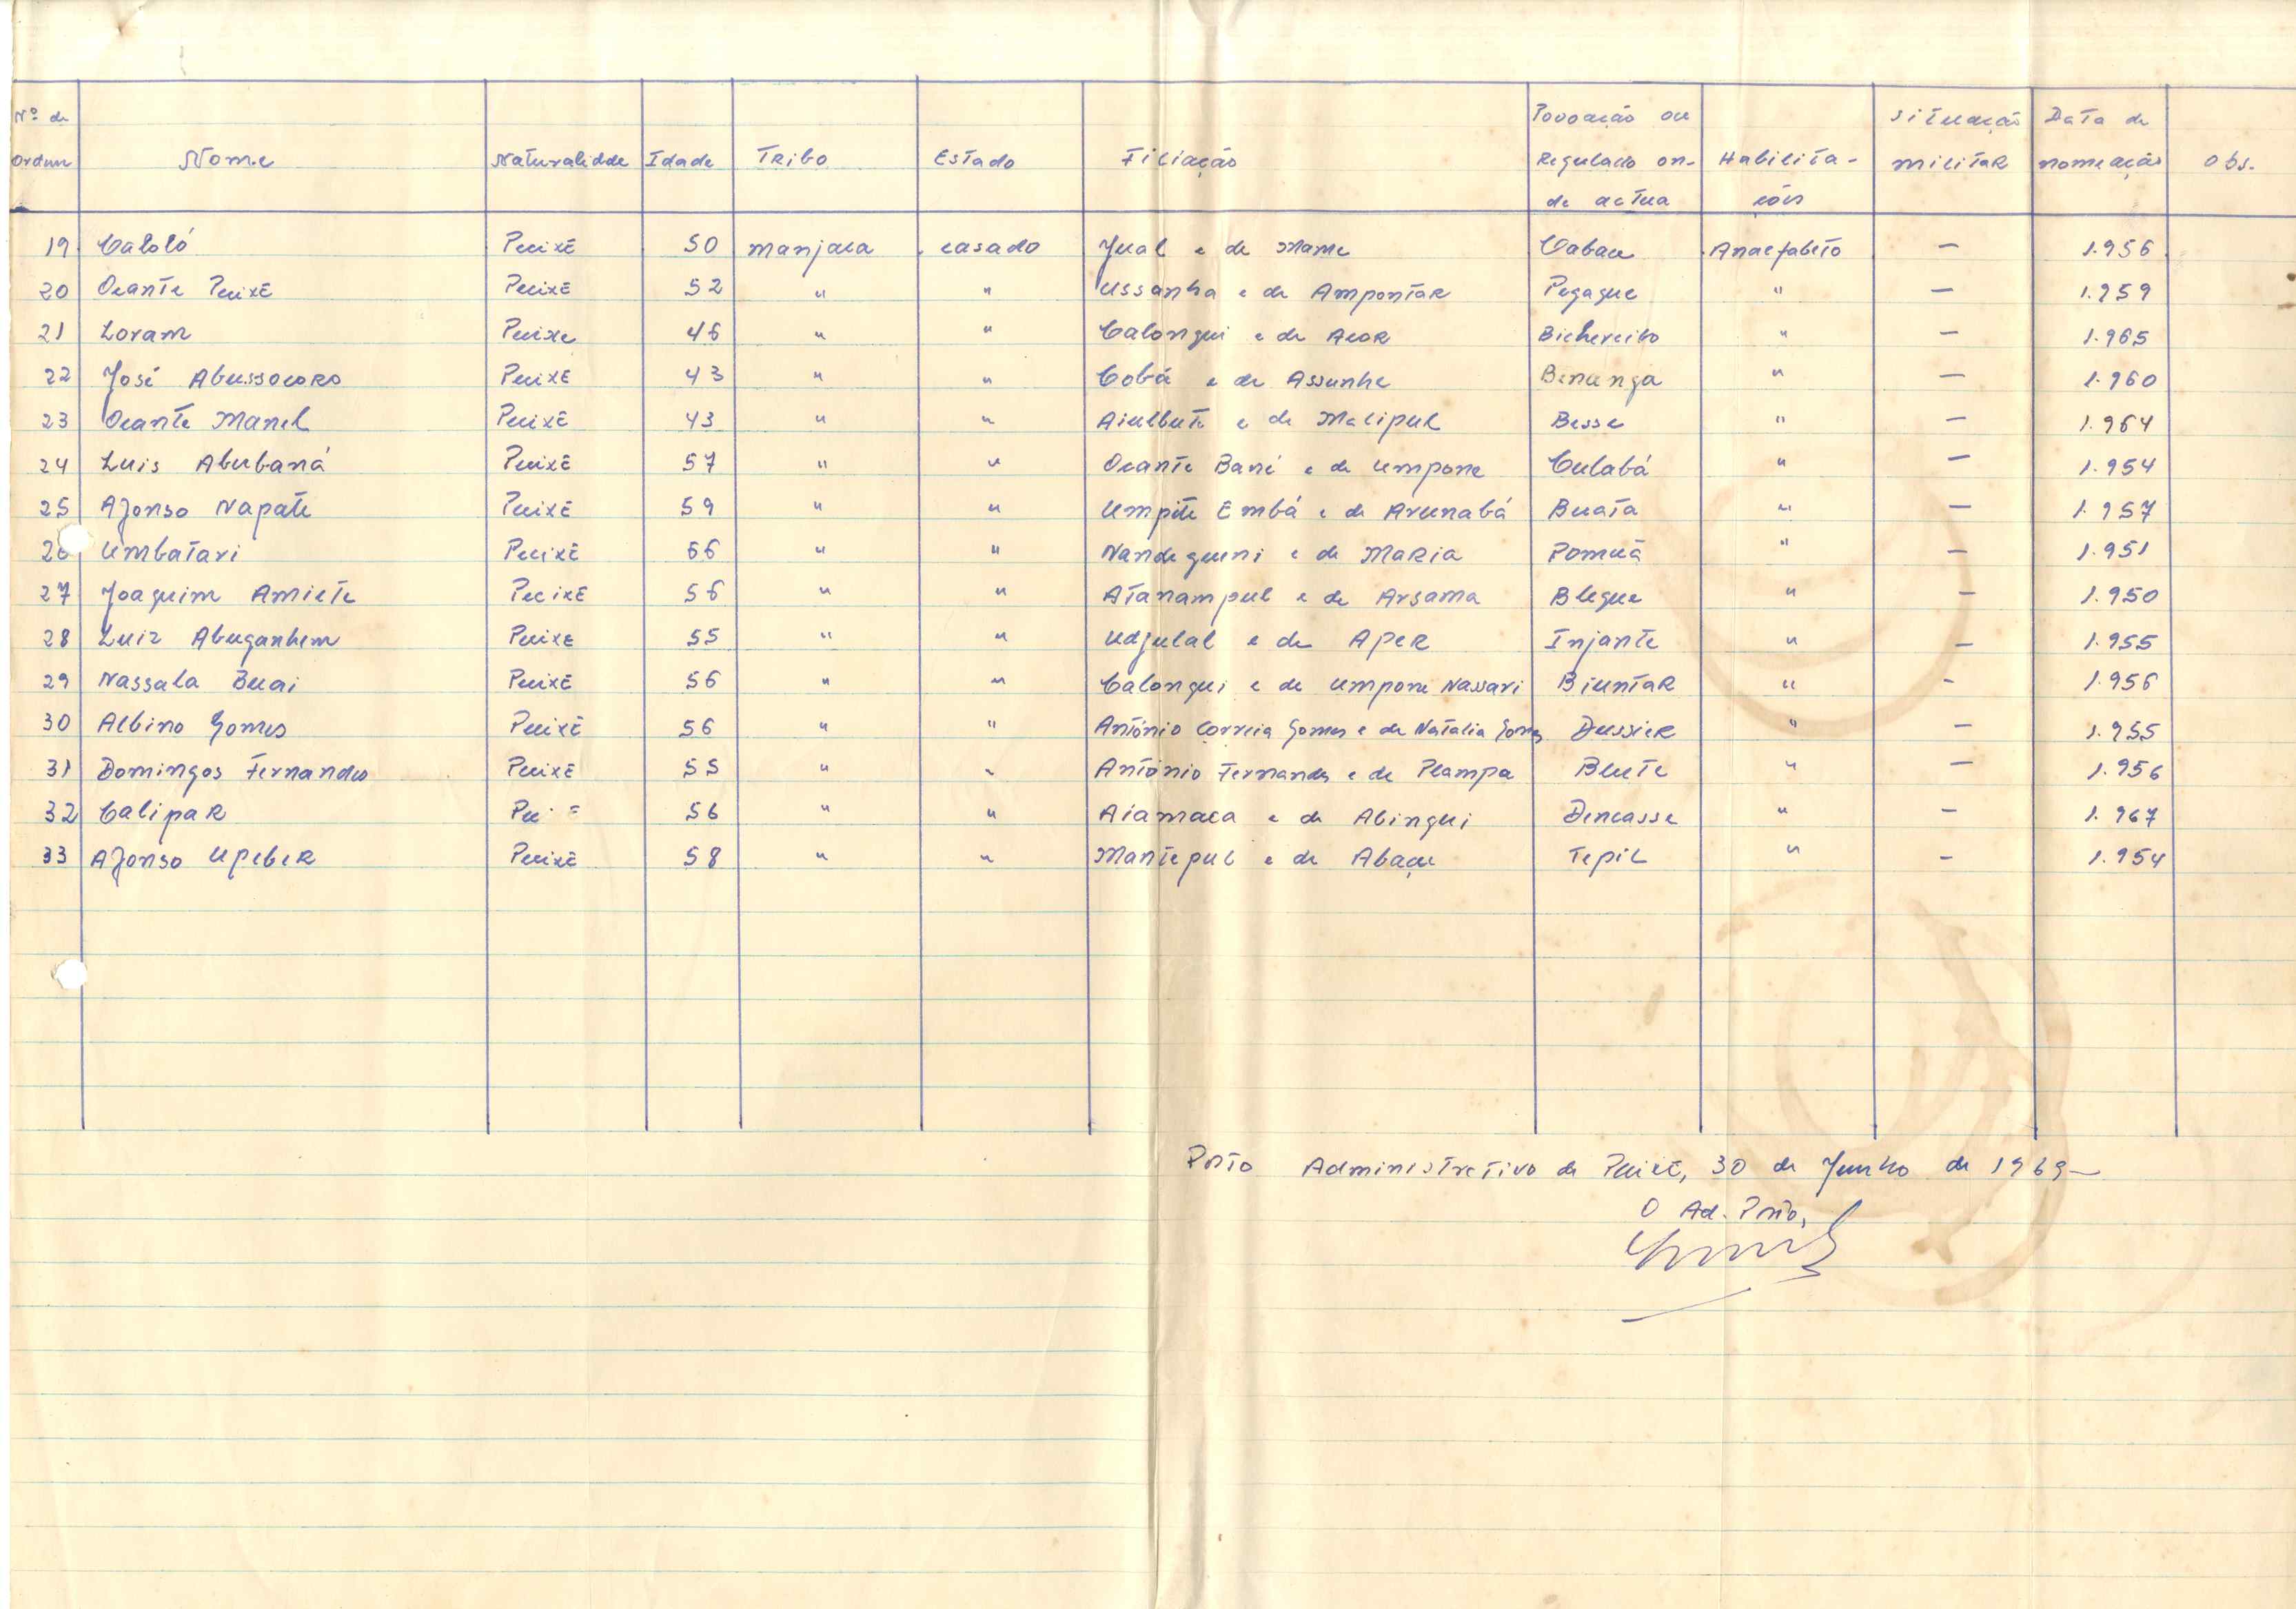 Nº de Ordem Nome Naturalidade Idade Tribo Estado Filiação Povoação ou Regulado onde actua Habilitações Situação militar Data de nomeação Obs.
19 Caloló Pecixe 50 manjaca casado Jual e de Mame Cabac Analfabeto — 1.956
20 Ocante Pecixe Pecixe 52 " " Ussanha e de Ampontar Pegague " — 1.959
21 Loram Pecixe 46 " " Calongui e de Acor Bichercibo " — 1.965
22 José Abussocoro Pecixe 43 " " Cobá e de Assunhe Benunga " — 1.960
23 Ocante Manel Pecixe 43 " " Aiulbute e de Malipul Besse " — 1.964
24 Luis Abubaná Pecixe 57 " " Ocante Bané e de Umpone Culabá " — 1.954
25 Afonso Napate Pecixe 59 " " Umpite Embá e de Arunabá Buata " — 1.957
26 Umbatari Pecixe 66 " " Nandeguni e de Maria Pomuã " — 1.951
27 Joaquim Amiete Pecixe 56 " " Atanampul e de Arsama Blegue " — 1.950
28 Luiz Abuganhem Pecixe 55 " " Udjulal e de Aper Injante " — 1.955
29 Nassala Buai Pecixe 56 " " Calongui e de Umpone Nassari Biuntar " - 1.956
30 Albino Gomes Pecixe 56 " " António Correia Gomes e de Natalia Gomes Dussier " — 1.955
31 Domingos Fernandes Pecixe 55 " " António Fernandes e de Plampa Blute " — 1.956
32 Calipar 56 " " Aiamaca e de Abingui Dencasse " — 1.967
33 Afonso Upeber Pecixe 58 " " Mantepul e de Abaçu Tepil " - 1.954
Posto Administrativo de Pecixe, 30 de Junho de 1969—
O Ad. Posto,